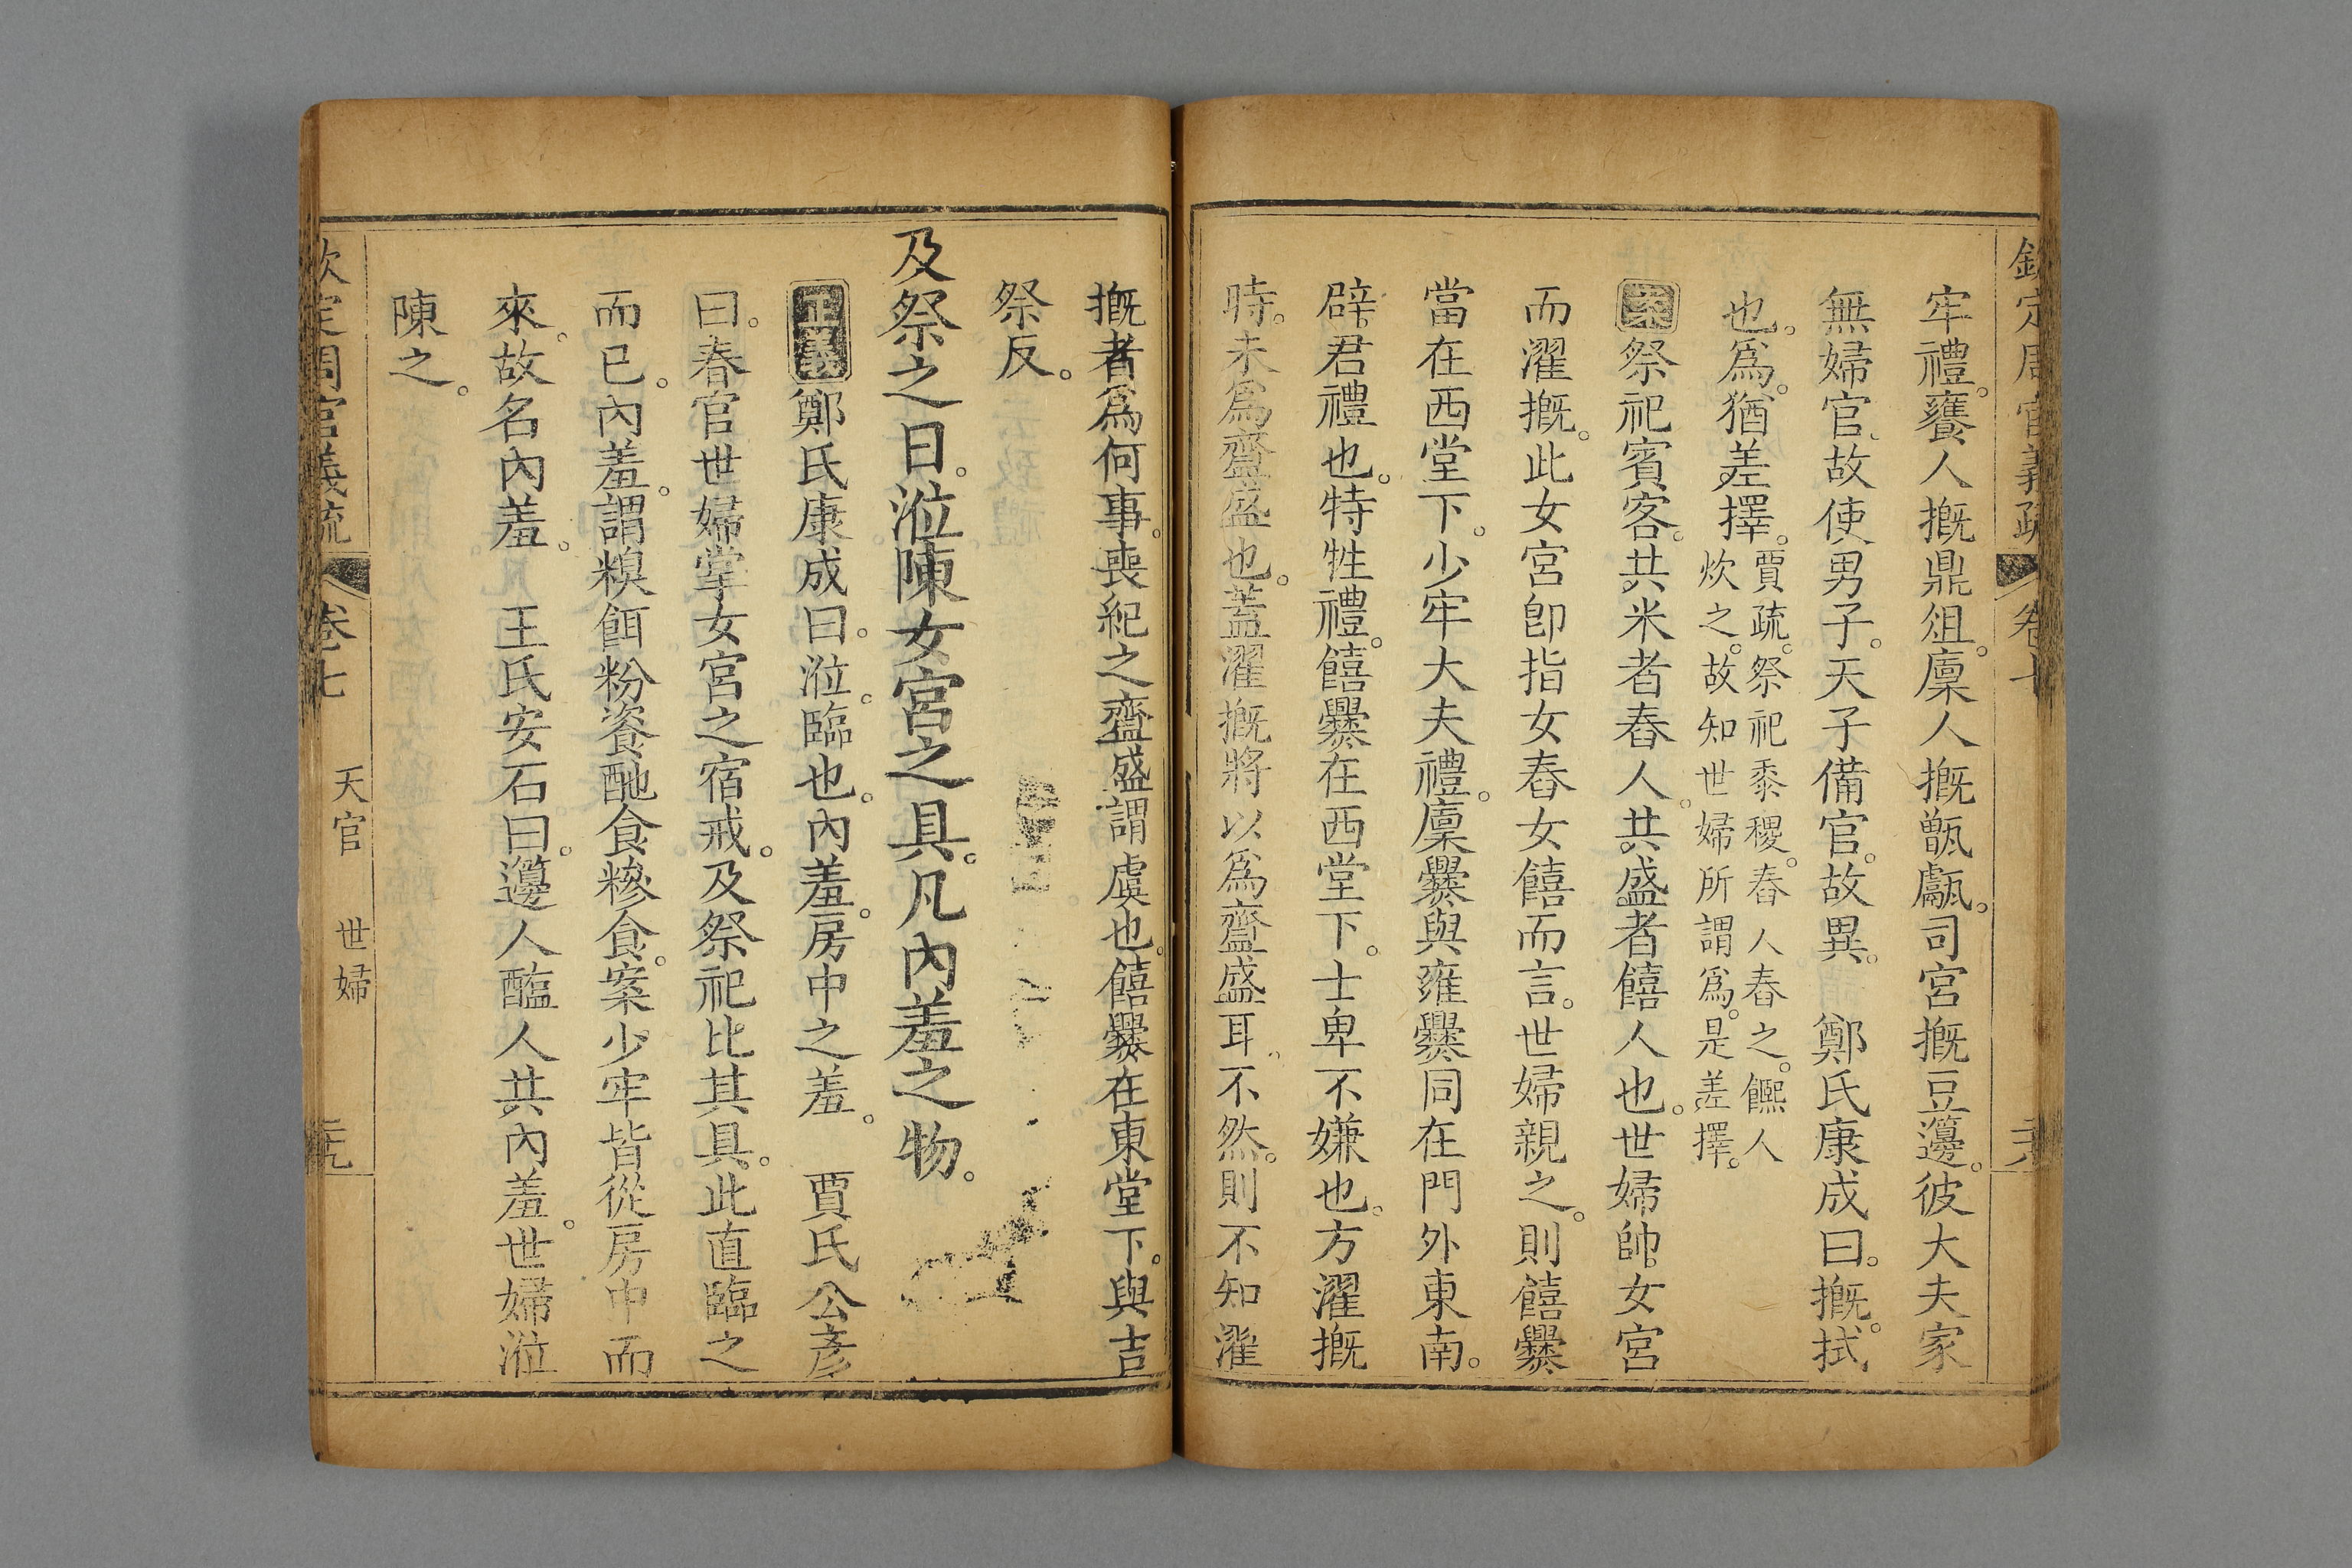 欽定周官義疏 卷七 六
牢禮。饔人摡鼎俎。廩人摡甑甗。司宮摡豆籩。彼大夫家
無婦官、故使男子。天子備官。故異。 鄭氏康成曰。摡。拭
也。爲。猶差擇。賈疏。祭祀黍稷。舂人舂之。饎人
炊之。故知世婦所謂爲。是差擇。
案祭祀賓客。共米者舂人。共盛者饎人也。世婦帥女宮
而濯摡。此女宮卽指女舂女饎而言。世婦親之。則饎爨
當在西堂下。少牢大夫禮。廩爨與雍爨同在門外東南。
辟君禮也。特牲禮。饎爨在西堂下。士卑不嫌也。方濯摡
時。未爲齍盛也。蓋濯摡將以爲齍盛耳。不然。則不知濯
摡者爲何事。喪紀之齍盛謂虞也。饎爨在東堂下。與吉
祭反。
及祭之日。涖陳女宮之具。凡內羞之物。
正義鄭氏康成曰。涖。臨也。內羞。房中之羞。 賈氏公彥
曰。春官世婦掌女宮之宿戒。及祭祀比其具。此直臨之
而已。內羞。謂糗餌粉餈酏食糝食。案少牢皆從房中而
來。故名內羞。 王氏安石曰。籩人醢人共內羞。世婦涖
陳之。
欽定周官義疏 卷七 天官 世婦 三九